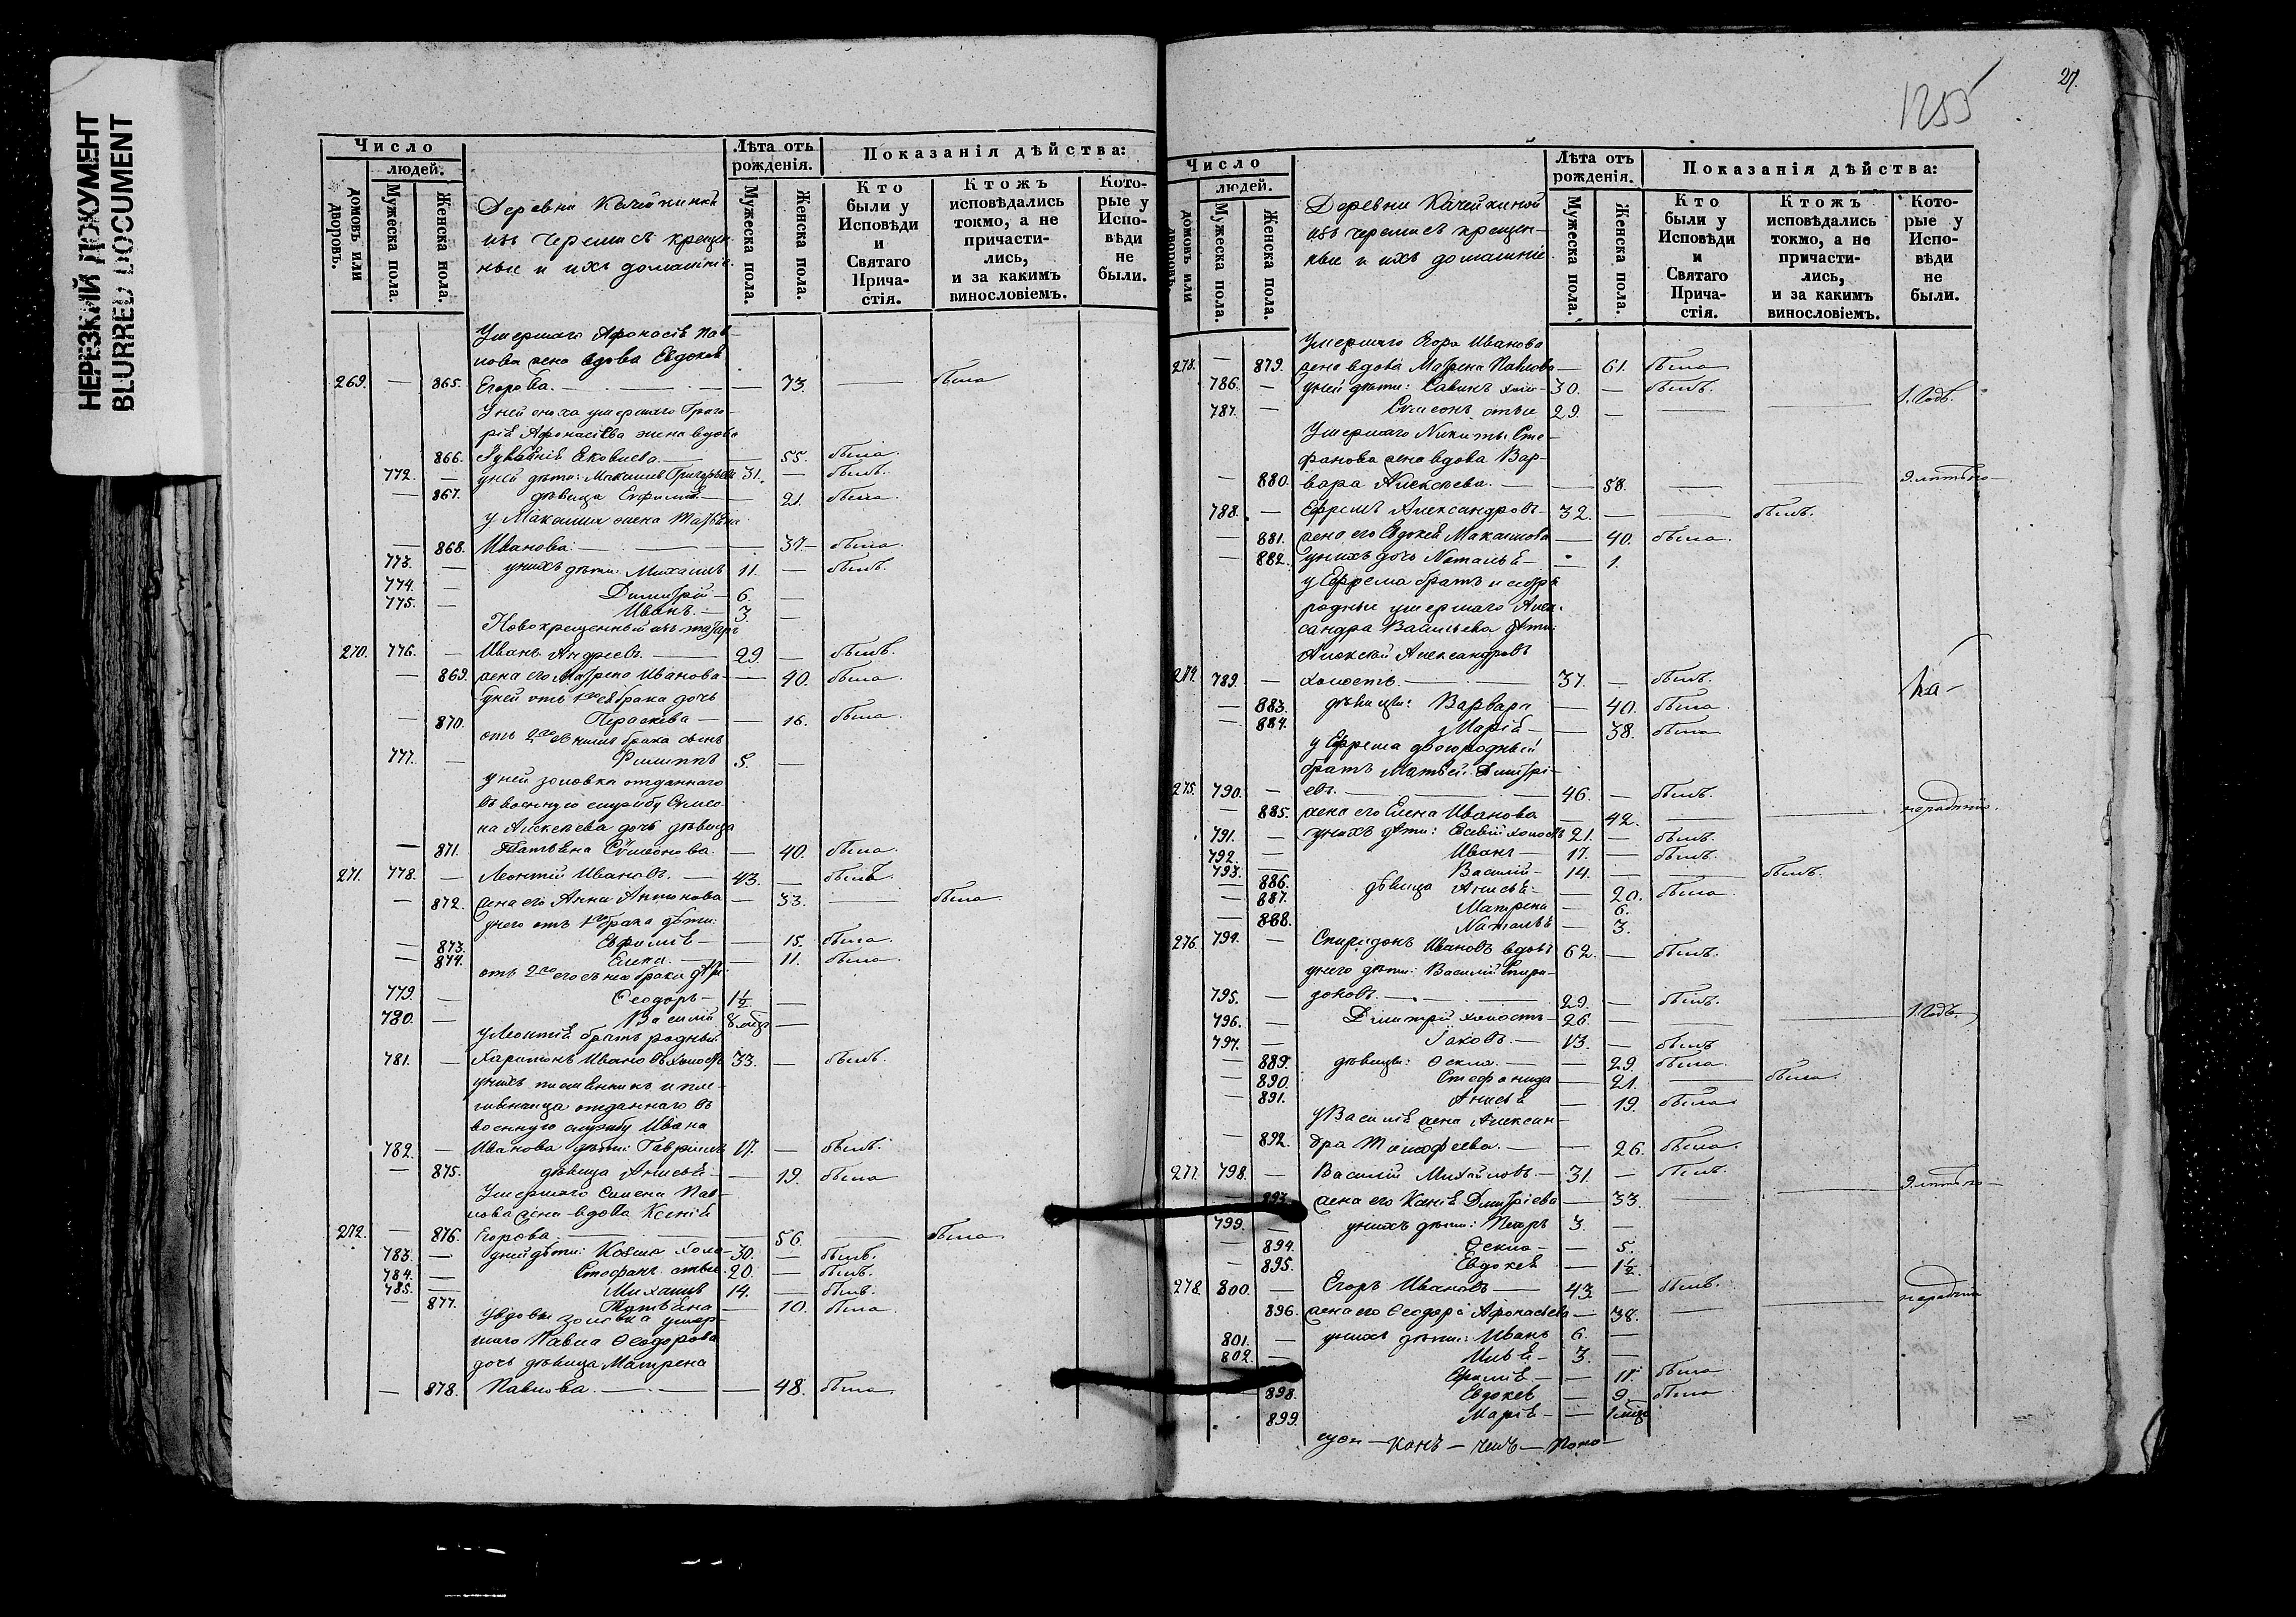 НЕРЕЗКИЙ ДОКУМЕНТ
BLURRED DOCUMENT
Число
людей.
домовъ или дворовъ.
Мужеска пола.
Женска пола.
Деревни Качейкиной
изъ черемисъ крещен-
ные и ихъ домашніе.
Лѣта отъ рожденія.
Мужеска пола.
Женска пола.
Показанія дѣйства:
Кто были у Исповѣди и Святаго Прича- стія.
Ктожъ исповѣдались токмо, а не причасти- лись, и за какимъ винословіемъ.
Кото- рые у Испо- вѣди не были.
Умершаго Афонасія Пав-
лова жена вдова Евдокія
269. — 865. Егорова. — — 73. — была
У ней сноха умершаго Григо-
рія Афонасьева жена вдова
866. Яковлева. — 55. была.
772. — у ней дѣти: Максимъ Григорьевъ 31. — былъ.
— 867. дѣвица Евфимія — — 21. была.
у Максима жена Татьяна
— 868. Иванова. — — 37. — была.
773. — у нихъ дѣти: Михаилъ 11. — былъ.
774. — Димитрій — 6. —
775. — Иванъ. — 3. —
Новокрещенный изъ татаръ
270. 776. — Иванъ Андреевъ. — 29. — былъ.
— 869. жена его Матрена Иванова — — 40. была.
у ней отъ 1го ея брака дочь
— 870. Параскева — — 16. была.
отъ 2го съ нимъ брака сынъ
777. — Филиппъ 5. —
у ней золовка отданнаго
въ военную службу Симео-
на Алексѣева дочь дѣвица
— 871. Татьяна Симеонова. — 40. была.
271. 778. — Леонтій Ивановъ. — 43. — былъ.
— 872. жена его Анна Антонова — 33. — была
у него отъ 1го брака дѣти:
— 873. Евфимія — — 15. была.
— 874. Елена. — — 11. была.
отъ 2го его съ нею брака дѣти:
779. — Ѳеодоръ — 1½ —
780. — Василій 8. мѣц. —
у Леонтія братъ родный
781. — Харитонъ Ивановъ холостъ 33. — былъ.
у нихъ племянникъ и пле-
мянница отданнаго въ
военную службу Ивана
782. — Иванова дѣти: Гавріилъ 17. — былъ.
— 875. дѣвица Анисья — — 19. была
Умершаго Симена Пав-
лова жена вдова Ксенія
272. — 876. Егорова. — — 56. — была
783. — у ней дѣти: Козма холо- 30. — былъ.
784. — Стефанъ 20. — былъ.
785. — Михаилъ 14. — былъ.
— 877. Татьяна — 10. была
у вдовы золовка умер-
шаго Павла Ѳеодорова
дочь дѣвица Матрена
— 878. Павлова. — — 48. была
27.
1255
Число
людей.
домовъ или дворовъ.
Мужеска пола.
Женска пола.
Деревни Качейкиной
изъ черемисъ крещен-
ные и ихъ домашніе.
Лѣта отъ рожденія.
Мужеска пола.
Женска пола.
Показанія дѣйства:
Кто были у Исповѣди и Святаго Прича- стія.
Ктожъ исповѣдались токмо, а не причасти- лись, и за какимъ винословіемъ.
Кото- рые у Испо- вѣди не были.
Умершаго Егора Иванова
273. — 879. жена вдова Матрена Павлова — 61. была
786. — у ней дѣти: Савинъ хол- 30. — былъ.
787. — Симеонъ 29. — — — 1. годъ.
Умершаго Никиты Сте-
фанова жена вдова Вар-
— 880. вара Алексѣева. — — 58. —
788. — Ефремъ Александровъ 32. — — былъ.
— 881. жена его Евдокія Максимова — 40. была.
— 882. у нихъ дочь Наталья — — 1.
у Ефрема братъ и сестры
родные умершаго Алек-
сандра Васильева дѣти:
Алексѣй Александровъ
274. 789. — холостъ. — 37. — былъ.
— 883. дѣвицы: Варвара — 40. была
— 884. Марія — — 38. была
у Ефрема двоюродный
братъ Матвей Дмитрі-
275. 790. — евъ. — 46. — былъ.
— 885. жена его Елена Иванова — 42. — —
791. — у нихъ дѣти: холостъ 21. — былъ.
792. — Иванъ — 17. — былъ.
793. — Василій — 14. — — былъ.
— 886. дѣвица Анисья — — 20. была
— 887. Матрена — 6.
— 888. Наталья — 3.
276. 794. — Спиридонъ Ивановъ вдовъ 62. — былъ.
у него дѣти: Василій Спири-
795. — доновъ. — 29. — былъ.
796. — Дмитрій холостъ — 26. — — — 1. годъ.
797. — Іаковъ. — 13. — былъ
— 889. дѣвицы: Ѳекла. — — 29. была
— 890. Стефанида — 21. — была.
— 891. Анисья — 19. была
у Василія жена Алексан-
— 892. дра Тимофеева. — — 26. была.
277. 798. — Василій Михайловъ — 31. — былъ.
893. жена его Ксенія Дмитріева — 33. — —
799. — у нихъ дѣти: Петръ 3. —
— 894. Ѳекла — — 5.
— 895. Евдокія — 1½
278. 800. — Егоръ Ивановъ — 43. — былъ.
896. жена его Ѳеодора Афонасьева — 38. — —
801. — у нихъ дѣти: Иванъ 6. —
802. — Илья — 3. —
Ефимія — — 11. была
898. Евдокія — 9. была
899. Марія — — 1 мѣц.